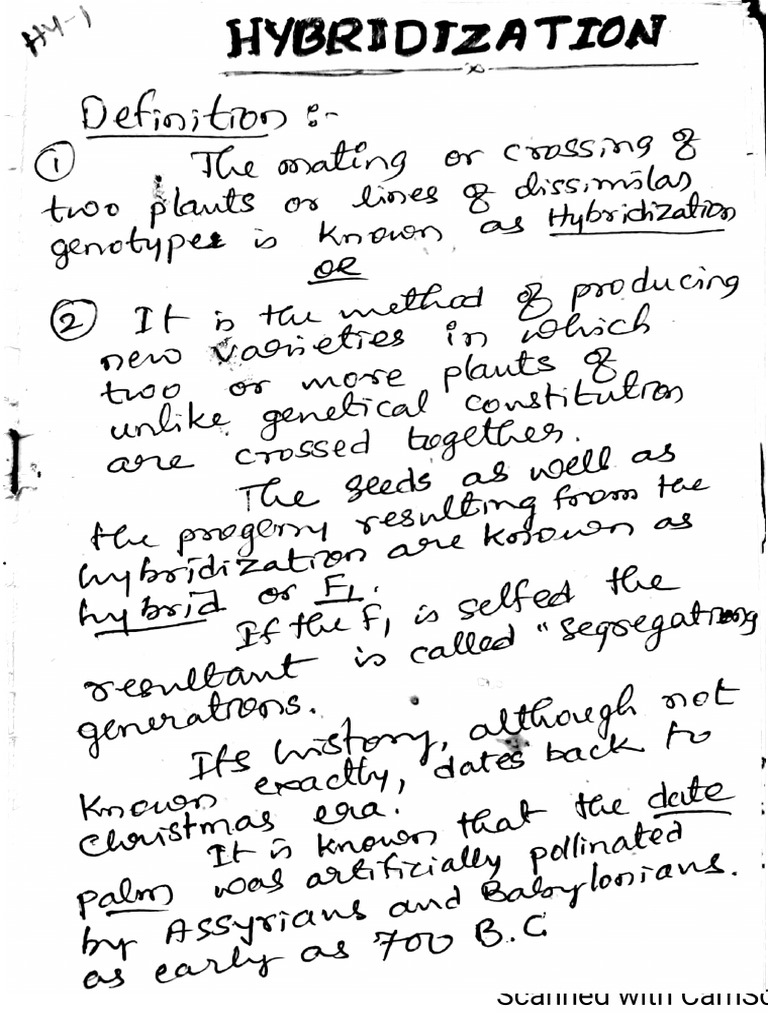 HY-1
HYBRIDIZATION
Definition :-
① The mating or crossing of
two plants or lines of dissimilar
genotypes is known as Hybridization
OR
② It is the method of producing
new varieties in which
two or more plants of
unlike genetical constitution
are crossed together.
The seeds as well as
the progeny resulting from the
hybridization are known as
hybrid or F1.
If the F1 is selfed the
resultant is called "segregating
generations.
Its history, although not
known exactly, dates back to
Christmas era.
It is known that the date
palm was artificially pollinated
by Assyrians and Babylonians.
as early as 700 B.C
Scanned with CamSc